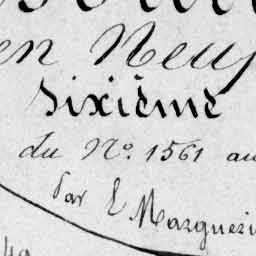 en Neuf
Sixième
du N.º 1561 au
Par E Margueri
49